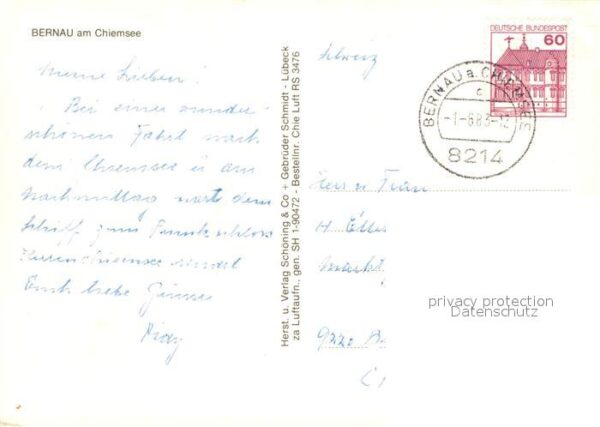 BERNAU am Chiemsee
Meine Lieben!
Bei einer wunder-
schönen Fahrt nach
dem Chiemsee u am
Nachmittag mit dem
Schiff zum
Herrenchiemsee
Euch liebe Grüsse
Herst. u. Verlag Schöning & Co + Gebrüder Schmidt - Lübeck
za Luftaufn., gen. SH 1-90472 - Bestellnr. Chie Luft RS 3476
Schweiz
DEUTSCHE BUNDESPOST
60
BERNAU a. CHIEMSEE
c
8214
Herr u Frau
H
9220
privacy protection
Datenschutz